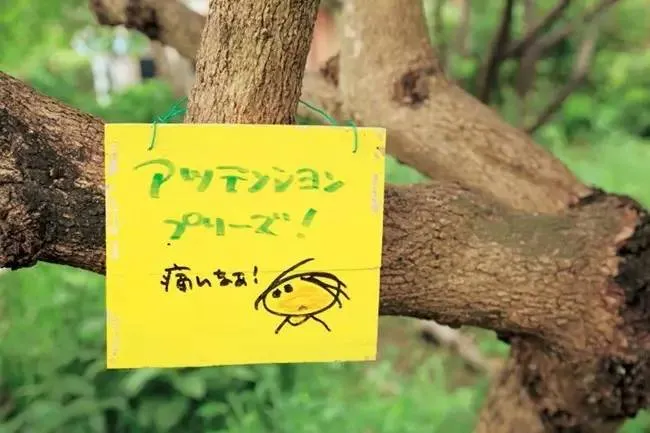 アツテンション
プリーズ!
痛いなぁ!